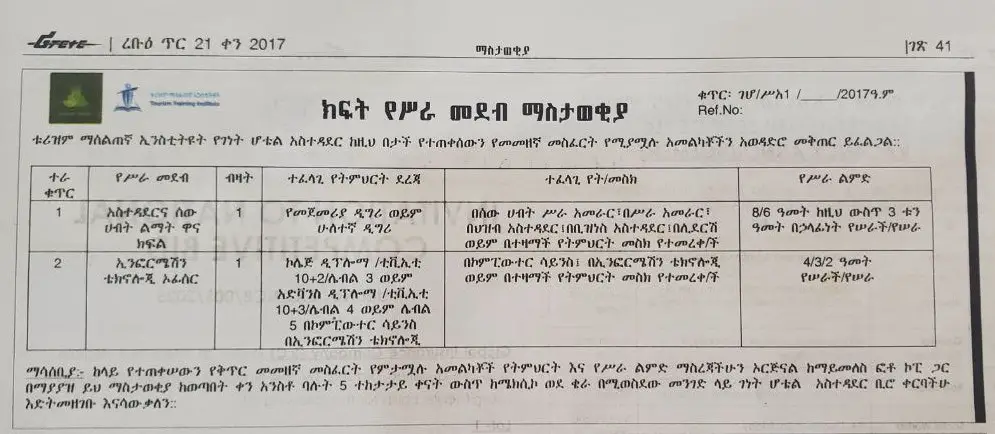 | ረቡዕ ጥር 21 ቀን 2017
ማስታወቂያ
|ገጽ 41
Tourism Training Institute
ክፍት የሥራ መደብ ማስታወቂያ
ቁጥር፡ ገሆ/ሥአ1 /_____/2017ዓ.ም
Ref.No:
ቱሪዝም ማሰልጠኛ ኢንስቲትዩት የገነት ሆቴል አስተዳደር ከዚህ በታች የተጠቀሰውን የመመዘኛ መስፈርት የሚያሟሉ አመልካቾችን አወዳድሮ መቅጠር ይፈልጋል::
ተራ ቁጥር
የሥራ መደብ
ብዛት
ተፈላጊ የትምህርት ደረጃ
ተፈላጊ የት/መስክ
የሥራ ልምድ
1
አስተዳደርና ሰው
ሀብት ልማት ዋና
ክፍል
1
የመጀመሪያ ዲግሪ ወይም
ሁለተኛ ዲግሪ
በሰው ሀብት ሥራ አመራር፣በሥራ አመራር፣
በህዝብ አስተዳደር፣በቢዝነስ አስተዳደር፣በሊደርሽ
ወይም በተዛማች የትምህርት መስክ የተመረቀ/ች
8/6 ዓመት ከዚህ ውስጥ 3 ቱን
ዓመት በኃላፊነት የሠራች/የሠራ
2
ኢንፎርሜሽን
ቴክኖሎጂ ኦፊሰር
1
ኮሌጅ ዲፕሎማ /ቲቪኢቲ
10+2/ሌብል 3 ወይም
አድቫንስ ዲፕሎማ /ቲቪኢቲ
10+3/ሌብል 4 ወይም ሌብል
5 በኮምፒውተር ሳይንስ
በኢንፎርሜሽን ቴክኖሎጂ
በኮምፒውተር ሳይንስ፤ በኢንፎርሜሽን ቴክኖሎጂ
ወይም በተዛማች የትምህርት መስክ የተመረቀ/ች
4/3/2 ዓመት
የሠራች/የሠራ
ማሳሰቢያ:- ከላይ የተጠቀሠውን የቅጥር መመዘኛ መስፈርት የምታሟሉ አመልካቾች የትምህርት እና የሥራ ልምድ ማስረጃችሁን ኦርጅናል ከማይመለስ ፎቶ ኮፒ ጋር
በማያያዝ ይህ ማስታወቂያ ከወጣበት ቀን አንስቶ ባሉት 5 ተከታታይ ቀናት ውስጥ ከሜክሲኮ ወደ ቄራ በሚወስደው መንገድ ላይ ገነት ሆቴል አስተዳደር ቢሮ ቀርባችሁ
እድትመዘገቡ እናሳውቃለን::